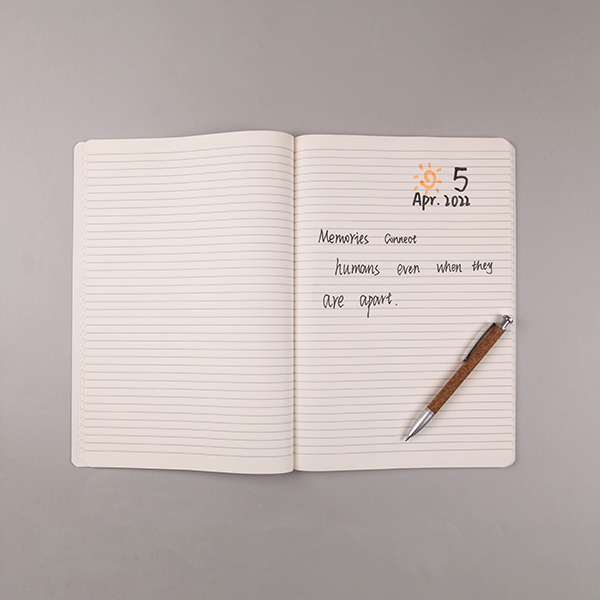 5
Apr. 2022
Memories connect
humans even when they
are apart.